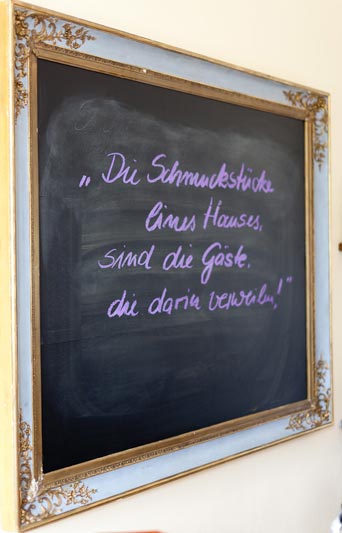 „Die Schmuckstücke
eines Hauses,
sind die Gäste,
die darin verweilen!"